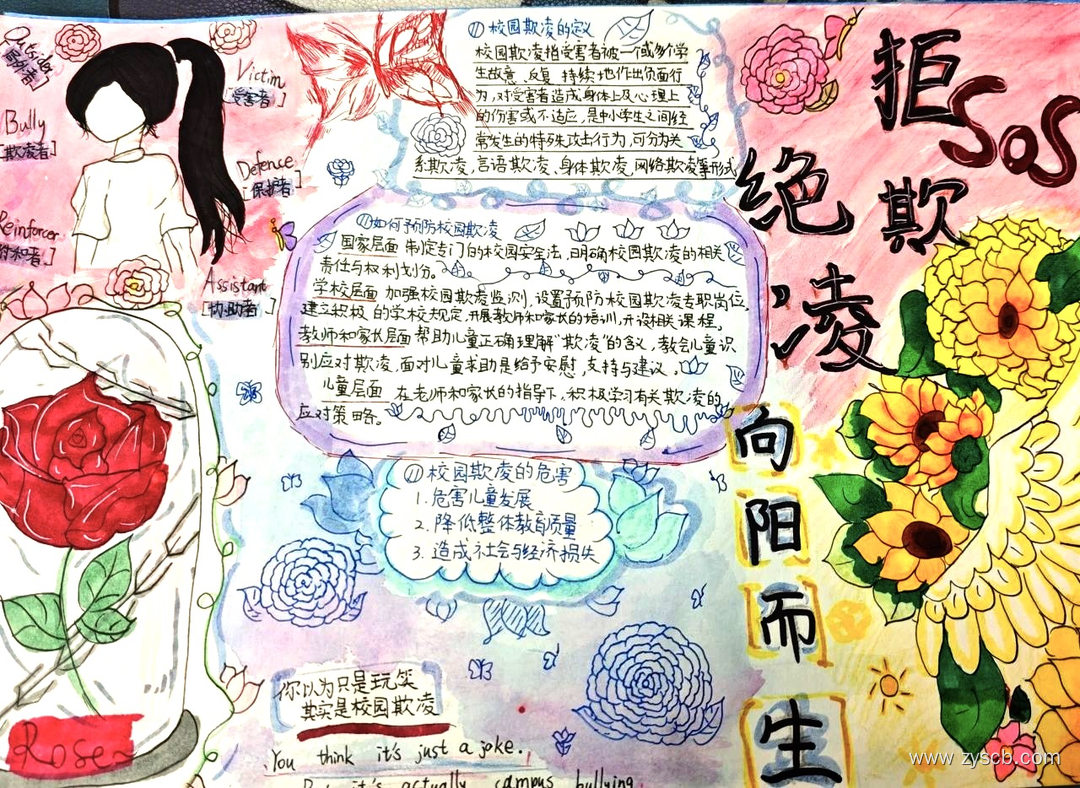 Outsider
Bully
[欺凌者]
Reinforcer
Victim
[受害者]
Defence
[保护者]
Assistant
[协助者]
Rose
(1) 校园欺凌的定义
校园欺凌指受害者被一个或多个学
生故意、反复、持续地作出负面行
为,对受害者造成身体上及心理上
的伤害或不适应,是中小学生之间经
常发生的特殊攻击行为,可分为关
系欺凌,言语欺凌、身体欺凌,网络欺凌等形式
如何预防校园欺凌
国家层面 制定专门的校园安全法,明确校园欺凌的相关
责任与权利划分。
学校层面 加强校园欺凌监测,设置预防校园欺凌专职岗位,
建立积极的学校规定,开展教师和家长的培训,开设相关课程。
教师和家长层面 帮助儿童正确理解"欺凌"的含义,教会儿童识
别应对欺凌,面对儿童求助是给予安慰,支持与建议。
儿童层面 在老师和家长的指导下,积极学习有关欺凌的
应对策略。
校园欺凌的危害
1. 危害儿童发展
2. 降低整体教育质量
3. 造成社会与经济损失
你以为只是玩笑
其实是校园欺凌
You think it's just a joke.
But it's actually campus bullying.
拒绝欺凌
SOS
向阳而生
www.zyscb.com